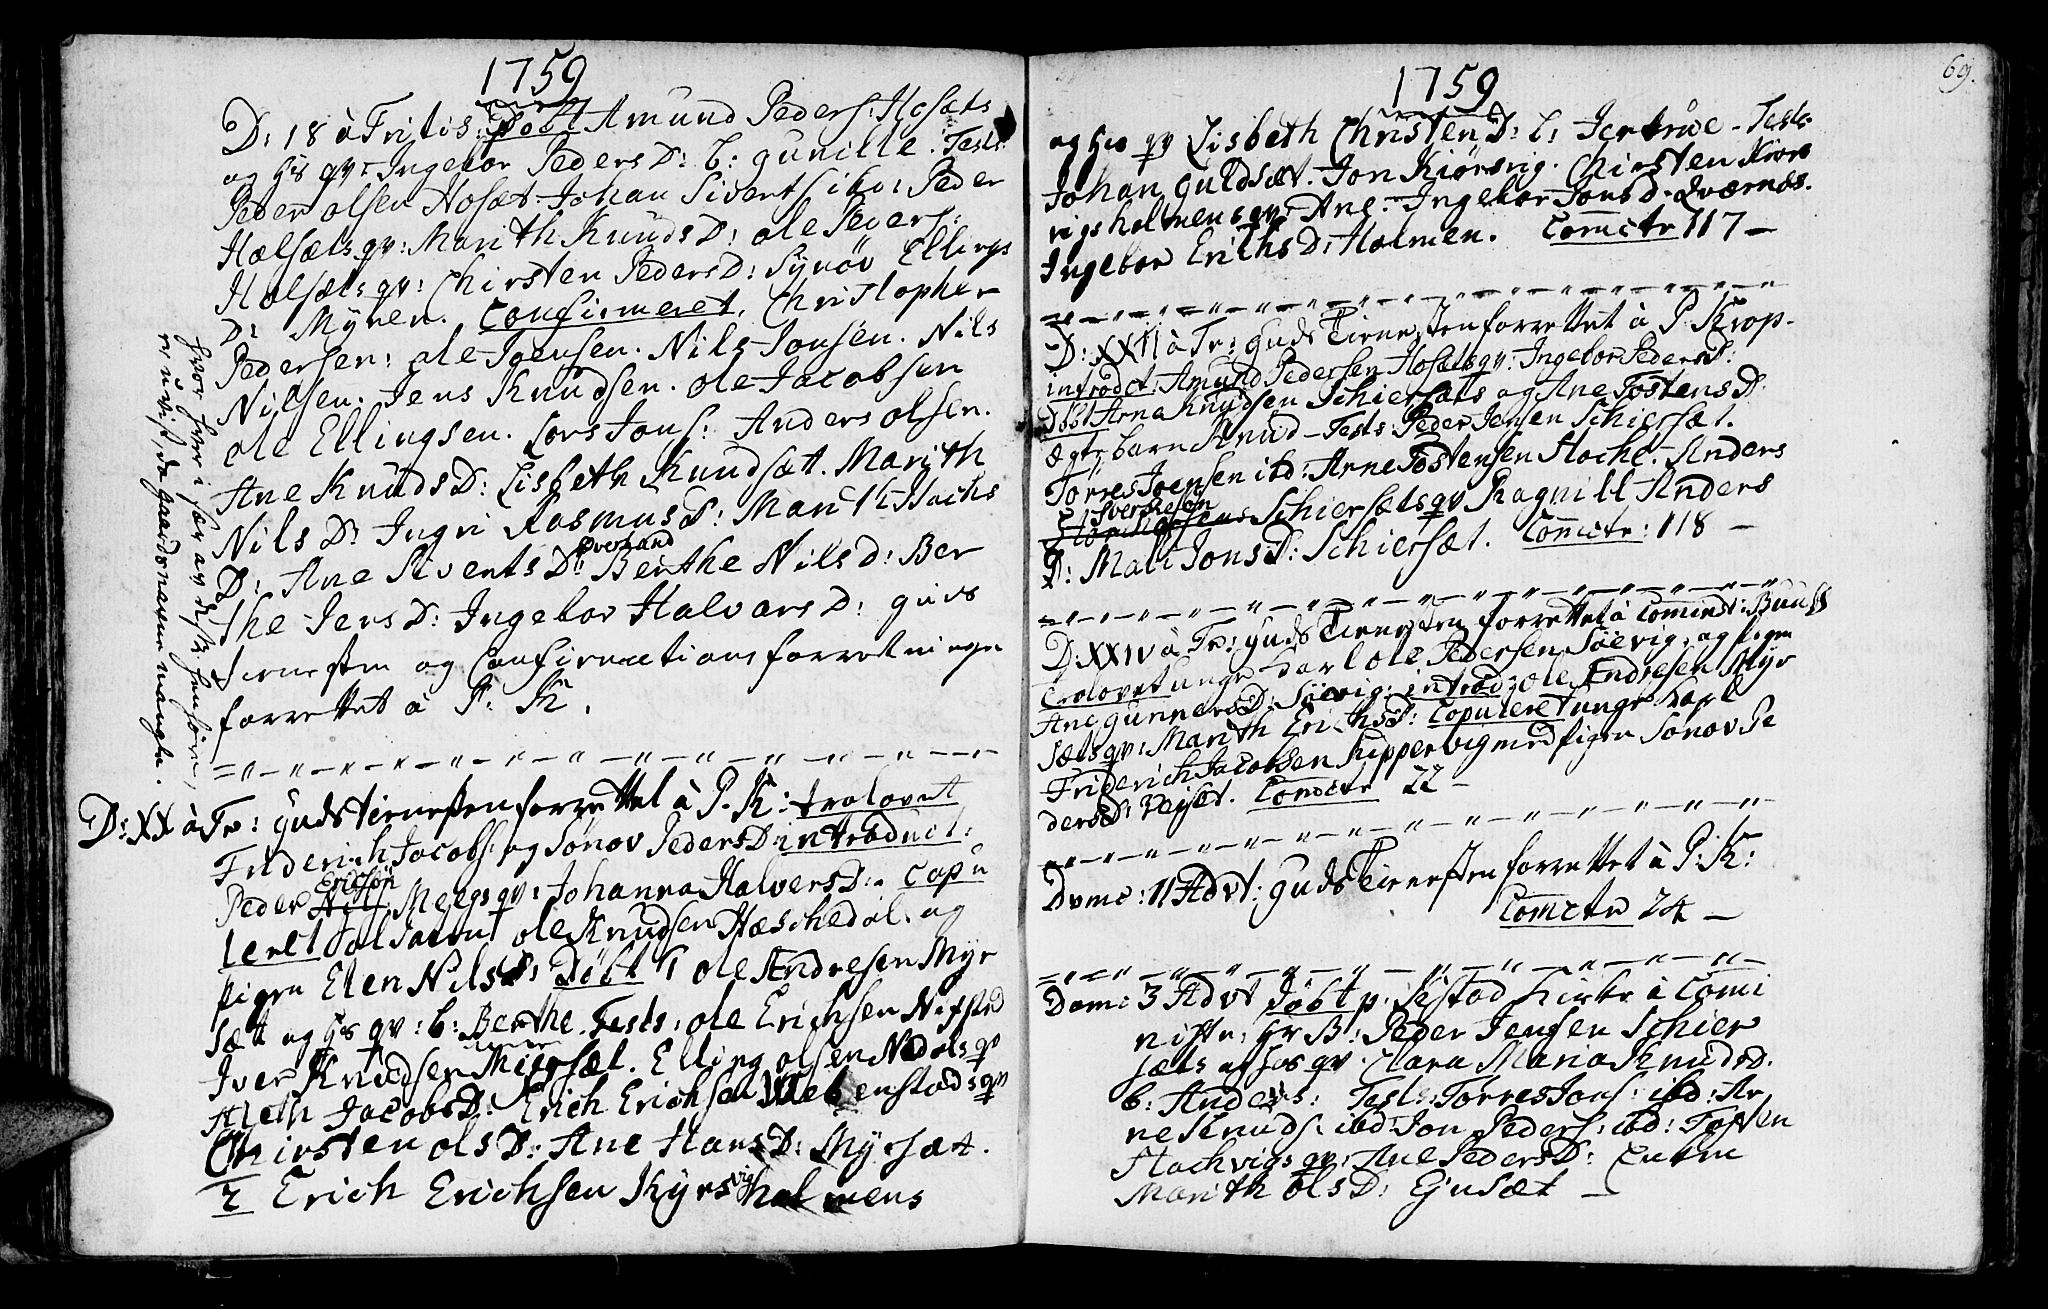 1759
D: 18 à Tritis: Döbt Amund Peders: Hosæts
og hs qv: Ingebor PedersD: b: gunille. Tests:
Peder olsen Hosæt Johan Siverts ibd: Peder
Hælsæts qv: Marith KnudsD: ole Peders:
Hælsæts qv: Chirsten PedersD: Synöv Ellings
D: Myren. Confirmeret, Christopher
Pedersen: ole Joensen. Nils Jonsen. Nils
Nilsen. Jens Knudsen. ole Jacobsen
ole Ellingsen. Lars Jons: Anders olsen.
Ane KnudsD: Lisbeth Knudsæt. Marith
NilsD: Ingri RasmusD: Marith Hachs
D: Ane SivertsD: Sverand Berthe NilsD: Ber
the JensD: Ingebor HalvarsD: guds
tienesten og Confirmations forretningen
forrettet à P: K.
hvor hver i sær av disse henhöre,
er uvist, da gaardonavne mangle.
D: XX à Tr: gudstienesten forrettet à P. K: trolovet
Friderich Jacobs: og Sönov PedersD: introduct:
Peder Erichsön Nils Meegs qv: Johanna HalversD: Copu
leret Soldatten ole Knudsen Hæschedal og
pigen Elen NilsD: Döbt 1 ole Andresen Myr
sætt og hs qv: b: Berthe. Tests: ole Erichsen Nefstad
Iver Knudsen Miersæt. Elling olsen Nedals qv
Aleth JacobsD: Erich Erichsen Mebenstads qv
Chirsten olsD: Ane HansD: Myrsæt.
2 Erich Erichsen Kyrsvigholmens
1759
69.
og hs qv Lisbeth ChristenD: b: Jertrue - Tests
Johan guldsæt. Jon Kiörsvig. Chirsten Kiörs
vigsholmens qv: Ane. Ingebor JonsD: Qværnæs.
Ingebor ErichsD: Holmen. Comctr 117 -
D: XXII à Tr: guds Tienesten forrettet à P: Krop.
introdct: Amund Pedersen Hosæts qv: Ingebor PedersD:
Döbt Arne Knudsen Schiersæts og Ane TostensD.
ægte barn Knud - Tests: Peder Jensen Schiersæt.
Torres Joensen ibd: Arne Tostensen Hache. Anders
Sverchesen Schiersæts qv Ragnill Anders
D: Mali JonsD: Schiersæt. Comctr: 118 -
D: XXIV à Tr: guds Tienesten forrettet à Cominst: Buuss
Trolovet unge Karl ole Pedersen Söevig, og pigen
Ane gunnersD: Söevig: introd: ole Andresen Myr
sæts qv: Marith ErichsD: Copuleret unge Karl
Friderich Jacobsen Kippervig med pigen Sönov Pe
dersD: Veiset. Comctr 22 -
Dome: 11 Advt: guds Tienesten forrettet à P: K:
Comctr 24 -
Dom: 3 Advt Döbt p. Stestad Kirke à Comi
nistr: Hr B: Peder Jensen Schier
sæts et hs qv. Clara Maria KnudsD.
b: Anders: Tests: Torres Jons: ibd: Ar
ne Knuds: ibd: Jon Peders: ibd: Tosten
Hachvigs qv: Ane PedersD: Enken
Marith olsD: Ejusæt -